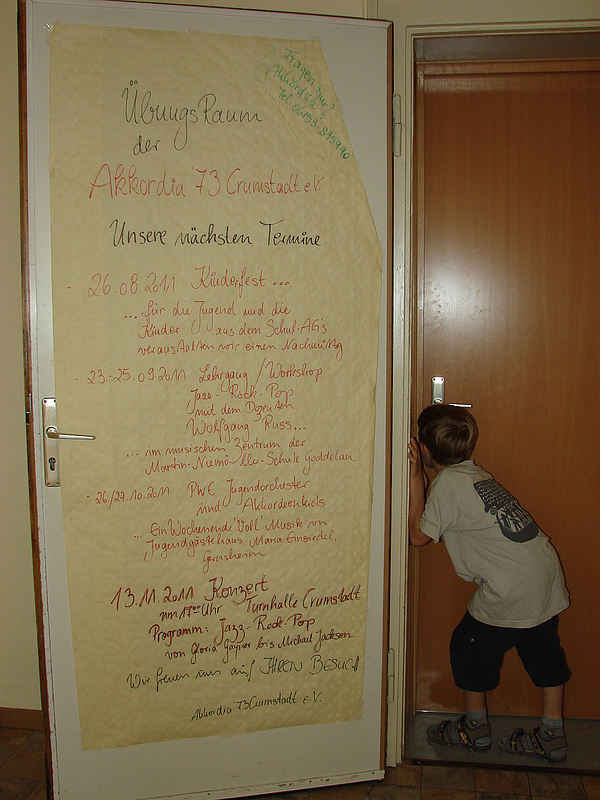 Fragen zur?
Akkordia?
Tel. 06158-875990
ÜbungsRaum
der
Akkordia '73 Crumstadt e.V.
Unsere nächsten Termine
- 26.08.2011 Kinderfest ...
... für die Jugend und die
Kinder aus dem Schul-AG's
veranstalten wir einen Nachmittag
- 23.-25.09.2011 Lehrgang / Workshop
Jazz - Rock - Pop
mit dem Dozenten
Wolfgang Russ...
... im musischen Zentrum der
Martin-Niemöller-Schule Goddelau
- 26/27.10.2011 PWE Jugendorchester
und Akkordeonkids
... Ein Wochenende "Voll" Musik im
Jugendgästehaus Maria Einsiedel,
Gernsheim
13.11.2011 Konzert
um 17°° Uhr Turnhalle Crumstadt
Programm: Jazz - Rock - Pop
von Gloria Gaynor bis Michael Jackson
Wir freuen uns auf IHREN BESUCH
Akkordia '73 Crumstadt e.V.